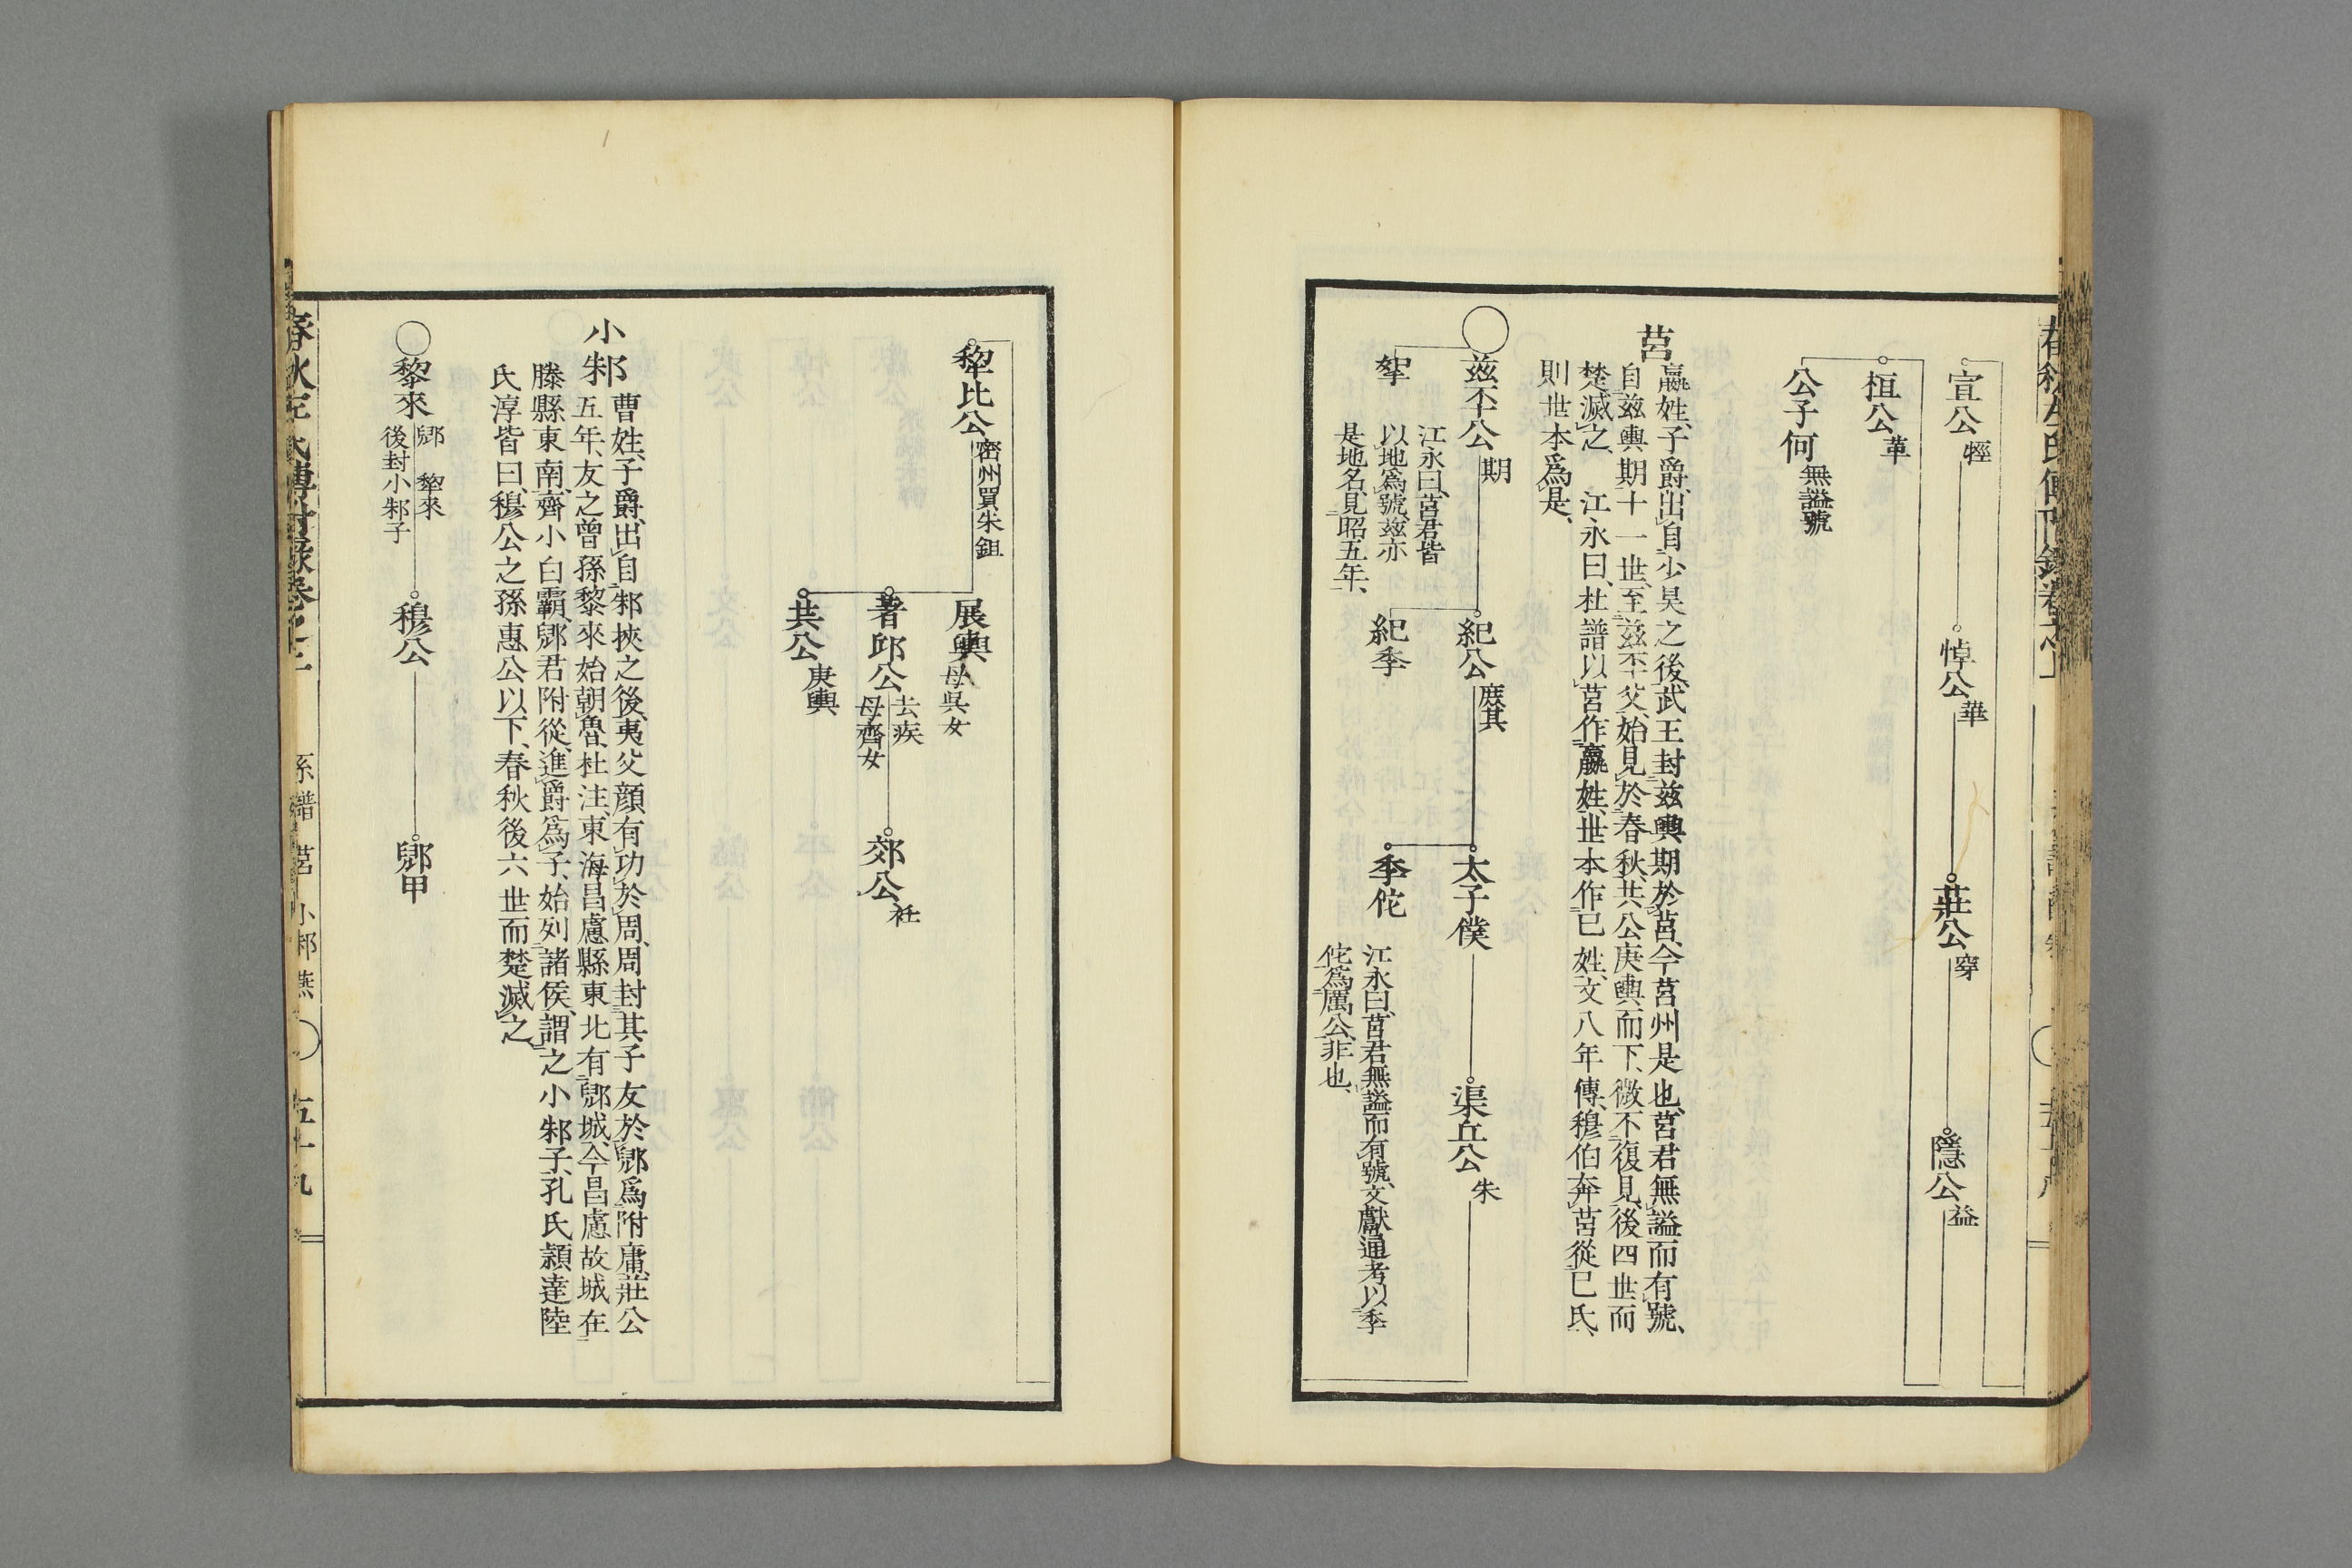 春秋左氏傳附錄卷之上
宣公 牼
悼公 華
莊公 穿
隱公 益
桓公 革
公子何 無謚號
莒
嬴姓、子爵、出自少昊之後、武王封茲輿期於莒、今莒州是也、莒君無謚而有號、
自茲輿期十一世、至茲丕父、始見於春秋、共公庚輿而下、微不復見、後四世而
楚滅之、江永曰、杜譜以莒作嬴姓、世本作已姓、文八年傳、穆伯奔莒從已氏、
則世本爲是、
○茲丕公 期
紀公 庶其
太子僕
渠丘公 朱
江永曰、莒君皆
以地爲號、茲亦
是地名、見昭五年、
挐
紀季
季佗
江永曰、莒君無謚而有號、文獻通考以季
佗爲厲公、非也、
犂比公 密州買朱鉏
展輿 母吳女
著邱公 去疾
母齊女
郊公 狂
共公 庚輿
小邾
曹姓、子爵、出自邾挾之後、夷父顏有功於周、周封其子友於郳、爲附庸、莊公
五年、友之曾孫黎來始朝魯、杜注、東海昌慮縣東北有郳城、今昌慮故城在
滕縣東南、齊小白霸、郳君附從、進爵爲子、始列諸侯、謂之小邾子、孔氏穎達陸
氏淳皆曰、穆公之孫惠公以下、春秋後六世而楚滅之、
○黎來 郳 犂來
後封小邾子
穆公
郳甲
春秋左氏傳附錄卷之上 系譜 莒 小邾 燕 ○ 五十九